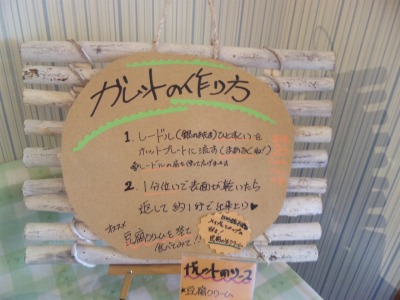 ガレットの作り方
1. レードル(銀のお玉)ひとすくいを
ホットプレートに流す(まあるくね!)
2. 1分位いで表面が乾いたら
返して約1分で出来上り♥
オススメ
豆腐クリームを塗って
食べてみて!!
ガレット用ソース
*豆腐クリーム